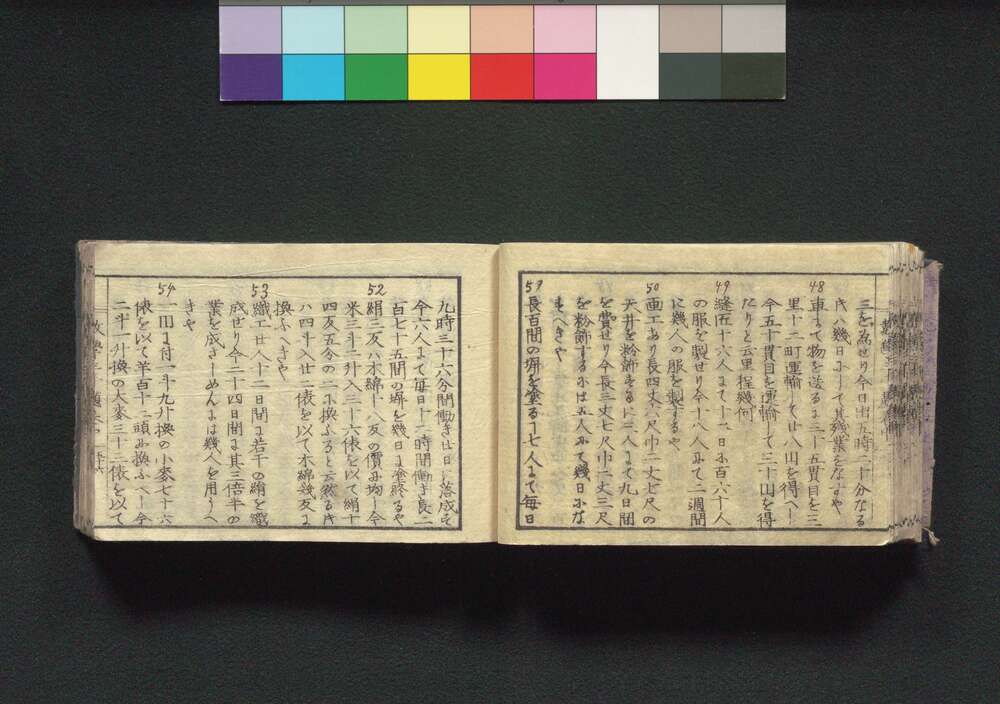 三を為せり今日出五時二十分なる
时ハ幾日にして其残業をなすや
48
車にて物を送るに三十五貫目を三
里十二町運輸して廿八山を得べし
今五十貫目を運輸して三十山を得
たりと云里程幾何
49
縫匠十六人にて十二日に百六十人
の服を製せり今十八人にて二週間
に幾人の服を製するや
50
画工あり長四丈六尺巾二丈七尺の
天井を粉飾するに二人にて九日間
を費せり今長三丈七尺巾二丈三尺
を粉飾するには五人にて幾日にな
すべきや
51
長百間の塀を塗るに七人にて毎日
九時三十六分間働き廿日に落成す
今六人にて毎日十二時間働き長二
百七十五間の塀を幾日に塗終るや
52
絹三反ハ木綿十八反の價に均し今
米三斗二升入三十六俵を以て絹十
四反五分の二に換ふると云然るとき
ハ四斗入廿二俵を以て木綿幾反に
換ふべきや
53
織工廿人十二日間に若干の絹を織
成せり今二十四日間に其三倍半の
業を成さしめんには幾人を用うべ
きや
54
一円に付一斗九升換の小麦七十六
俵を以て羊百十二頭に換ふべし今
二斗一升換の大麦三十二俵を以て